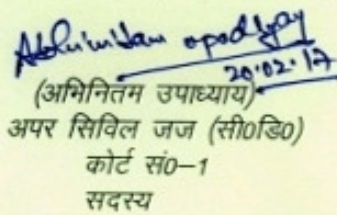 Abhinitam opadhyay
20.02.17
(अभिनितम उपाध्याय)
अपर सिविल जज (सी0डि0)
कोर्ट सं0–1
सदस्य